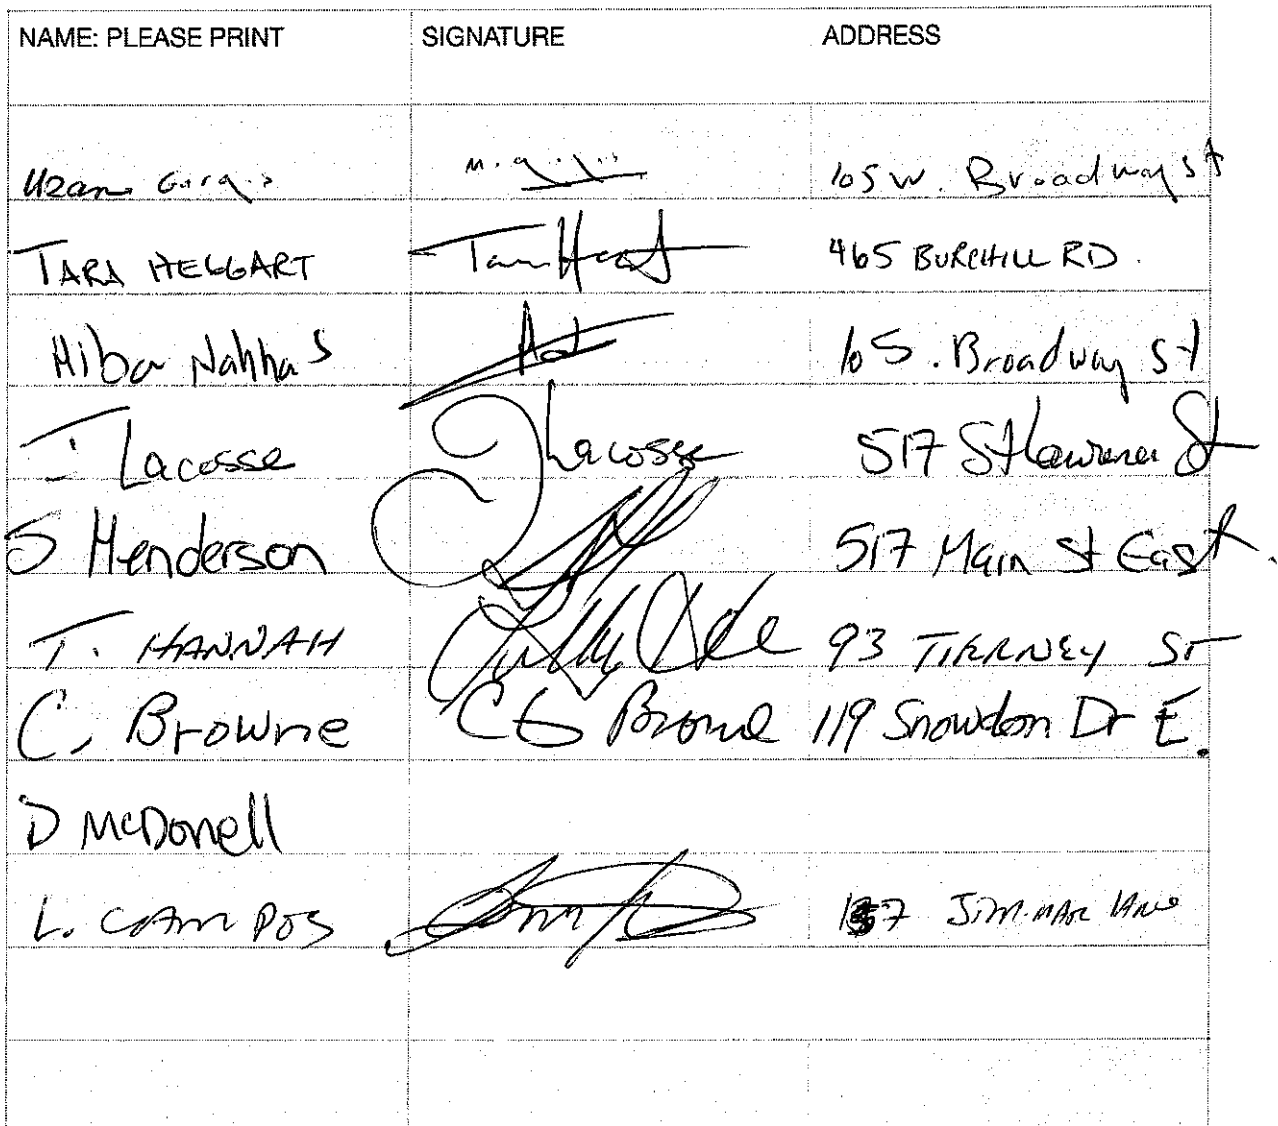 NAME: PLEASE PRINT SIGNATURE ADDRESS
105 W. Broadway st
TARA HEGGART 465 BURCHILL RD.
Hiba Nahhas 105. Broadway st
I Lacosse Lacosse 517 St Lawrence St
S Henderson 517 Main St East.
T. HANNAH 93 TIERNEY ST
C. Browne CG Browne 119 Snowdon Dr E.
D McDonell
L. CAMPOS